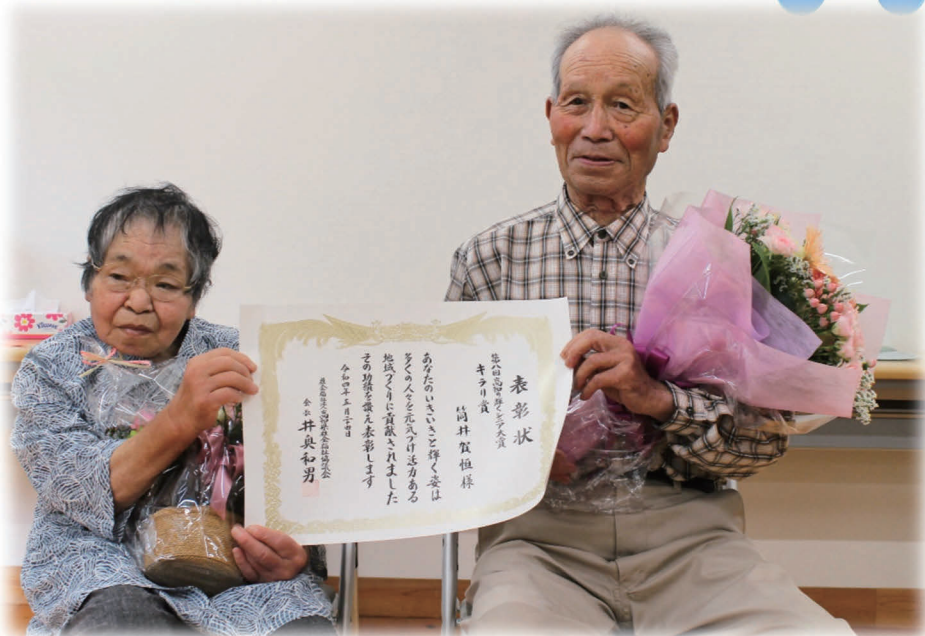 表彰状
第八回高知の輝くシニア大賞
キラリ賞
筒井賀恒様
あなたのいきいきと輝く姿は
多くの人々を元気づけ活力ある
地域づくりに貢献されました
その功績を讃え表彰します
令和四年三月二十四日
社会福祉協議会
会長 井奥和男